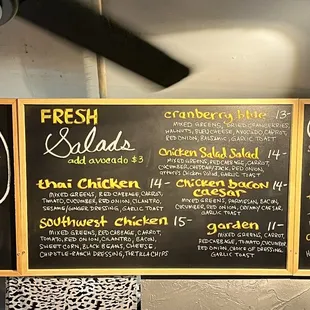 FRESH
Salads
add avocado $3
thai Chicken 14-
MIXED GREENS, RED CABBAGE, CARROT,
TOMATO, CUCUMBER, RED ONION, CILANTRO,
SESAME/GINGER DRESSING, GARLIC TOAST
southwest chicken 15-
MIXED GREENS, RED CABBAGE, CARROT,
TOMATO, RED ONION, CILANTRO, BACON,
SWEET CORN, BLACK BEANS, CHEESE,
CHIPOTLE-RANCH DRESSING, TORTILLA CHIPS
cranberry bleu 13-
MIXED GREENS, DRIED CRANBERRIES,
WALNUTS, BLEU CHEESE, AVOCADO, CARROT,
RED ONION, BALSAMIC, GARLIC TOAST
Chicken Salad Salad 14-
MIXED GREENS, RED CABBAGE, CARROT,
CUCUMBER, CHEDDAR/JACK, RED ONION,
Chicken Salad, GARLIC TOAST
Chicken bacon 14-
caesar
MIXED GREENS, PARMESAN, BACON,
CUCUMBER, RED ONION, CREAMY CAESAR,
GARLIC TOAST
garden 11-
MIXED GREENS, CARROT,
RED CABBAGE, TOMATO, CUCUMBER
RED ONION, CHOICE OF DRESSING,
GARLIC TOAST